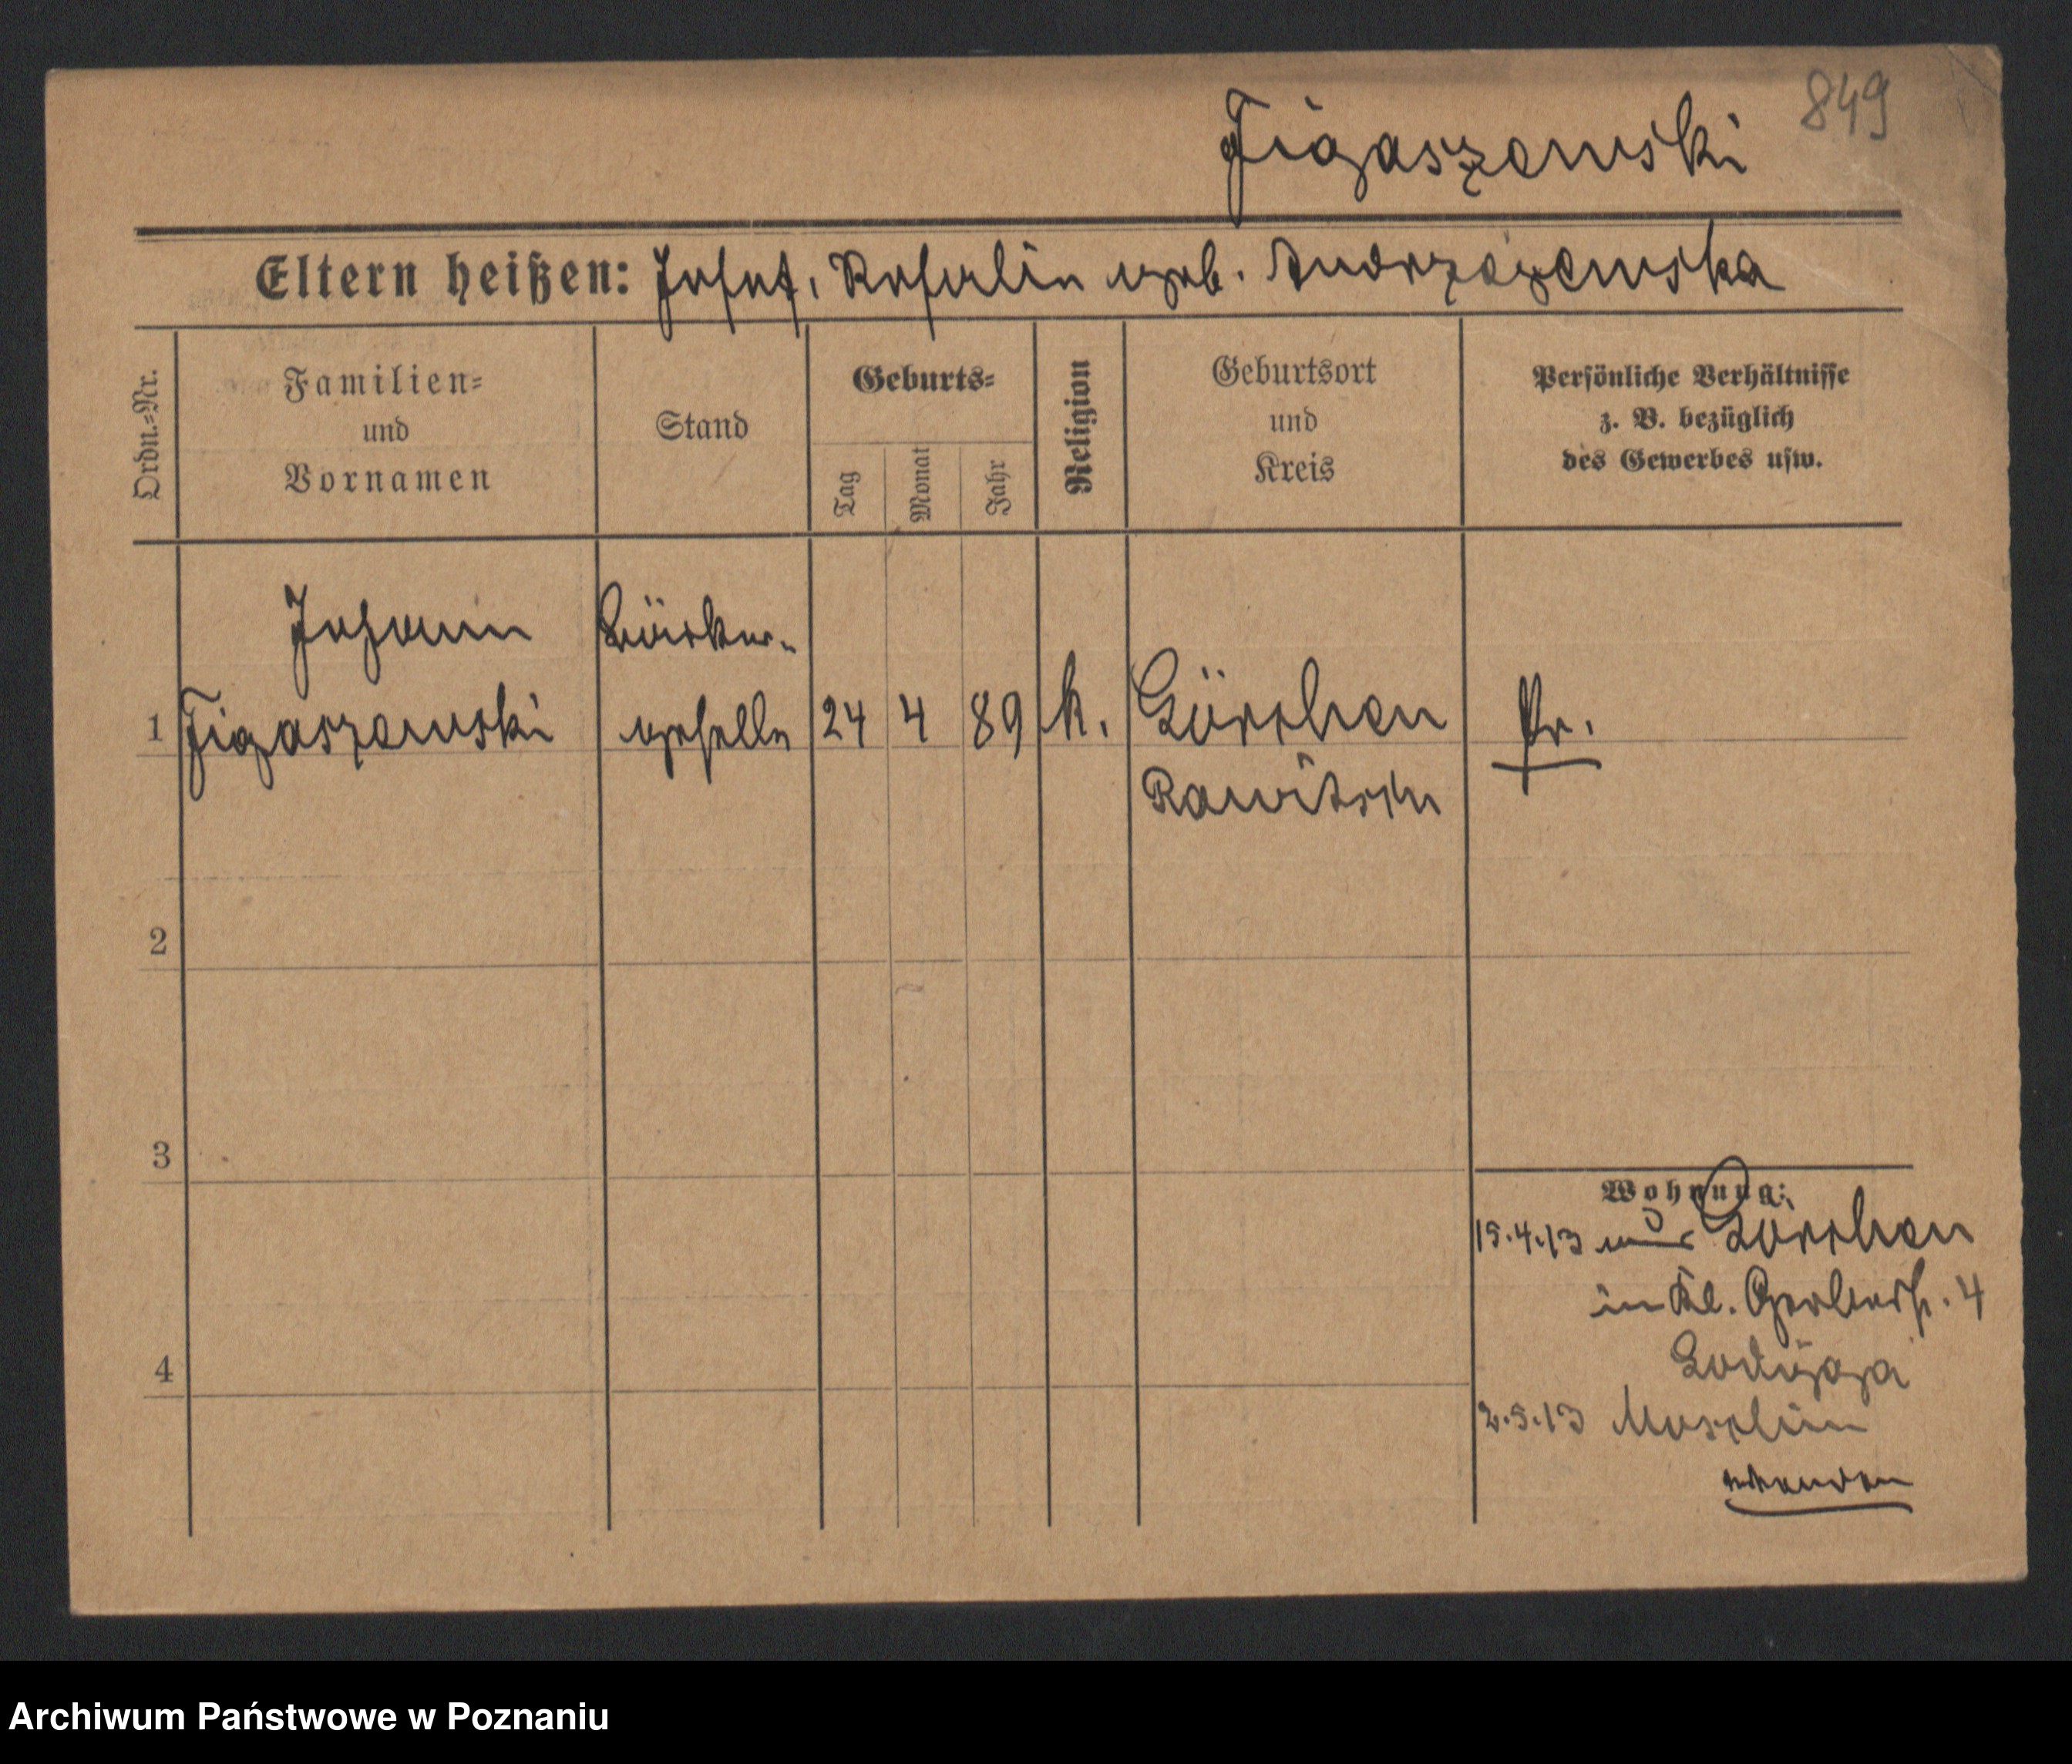 849
Figaszewski
Eltern heißen: Josef, Rosalie geb. Andrzejewska
Ordn.=Nr.
Familien=
und
Vornamen
Stand
Geburts=
Tag
Monat
Jahr
Religion
Geburtsort
und
Kreis
Persönliche Verhältnisse
z. B. bezüglich
des Gewerbes usw.
Johann
Bäcker-
1 Figaszewski geselle 24 4 89 k. Görchen Pr.
Rawitsch
2
3
Wohnung:
15.4.13 aus Görchen
in Kl. Gerberstr. 4
2.5.13
4
Archiwum Państwowe w Poznaniu